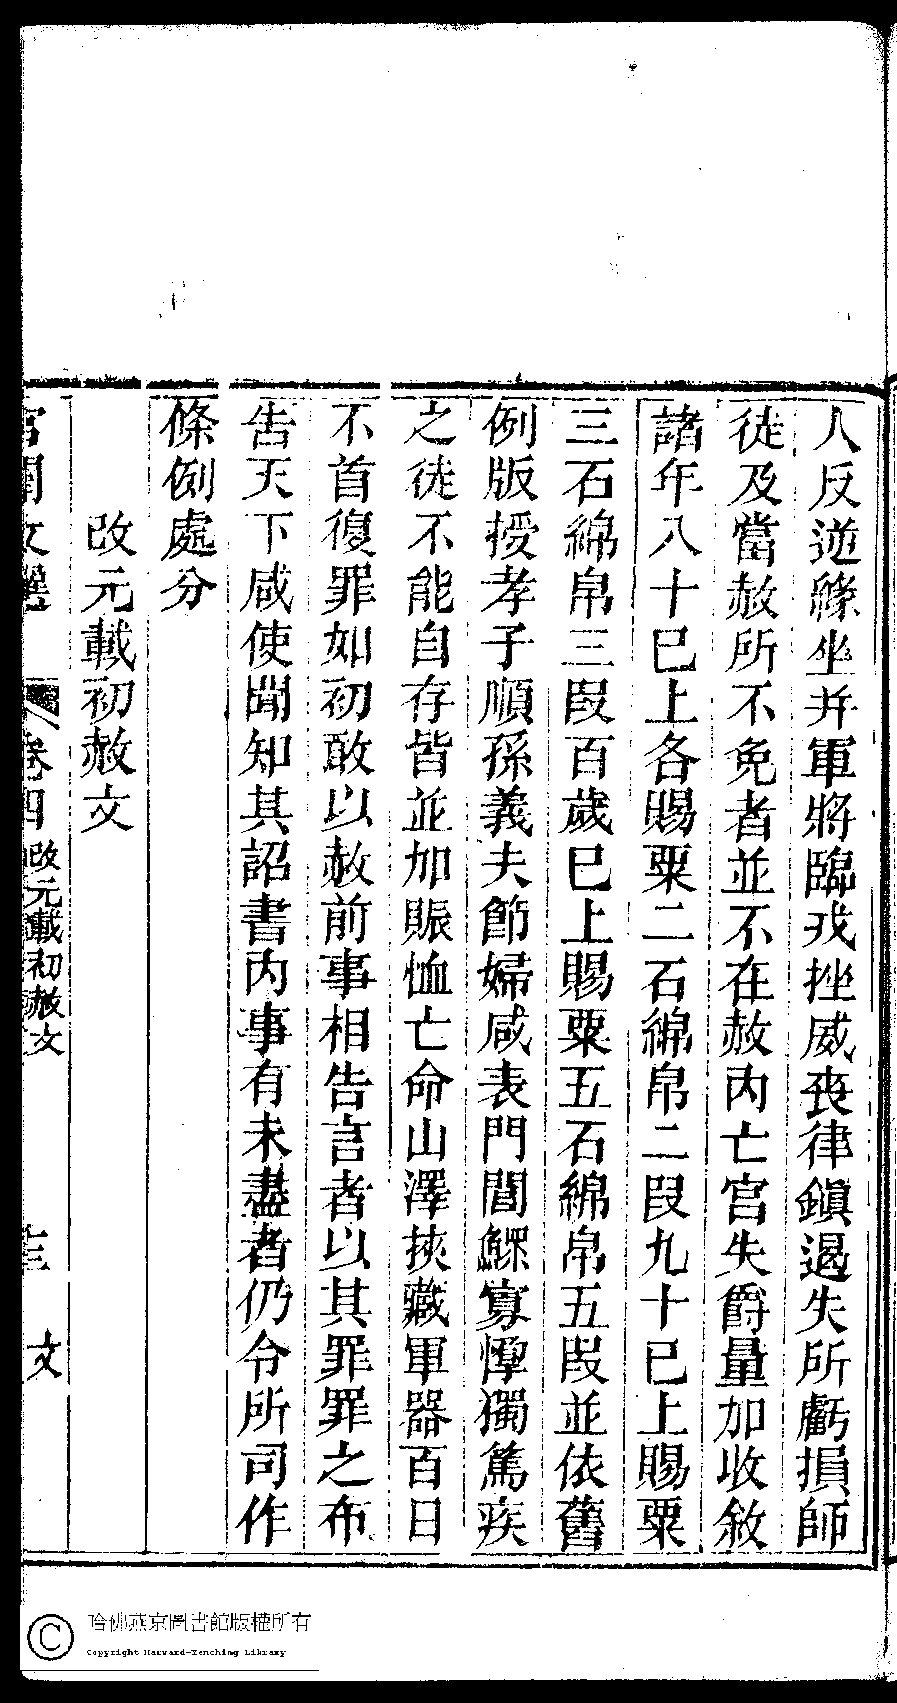 人反逆緣坐并軍將臨戎挫威喪律鎮遏失所虧損師
徒及當赦所不免者並不在赦內亡官失爵量加收敘
諸年八十已上各賜粟二石綿帛二段九十已上賜粟
三石綿帛三段百歲已上賜粟五石綿帛五段並依舊
例版授孝子順孫義夫節婦咸表門閭鰥寡惸獨篤疾
之徒不能自存皆並加賑恤亡命山澤挾藏軍器百日
不首復罪如初敢以赦前事相告言者以其罪罪之布
告天下咸使聞知其詔書內事有未盡者仍令所司作
條例處分
改元載初赦文
宮閨文選 卷四 改元載初赦文 文
哈佛燕京圖書館版權所有
Copyright Harvard-Yenching Library